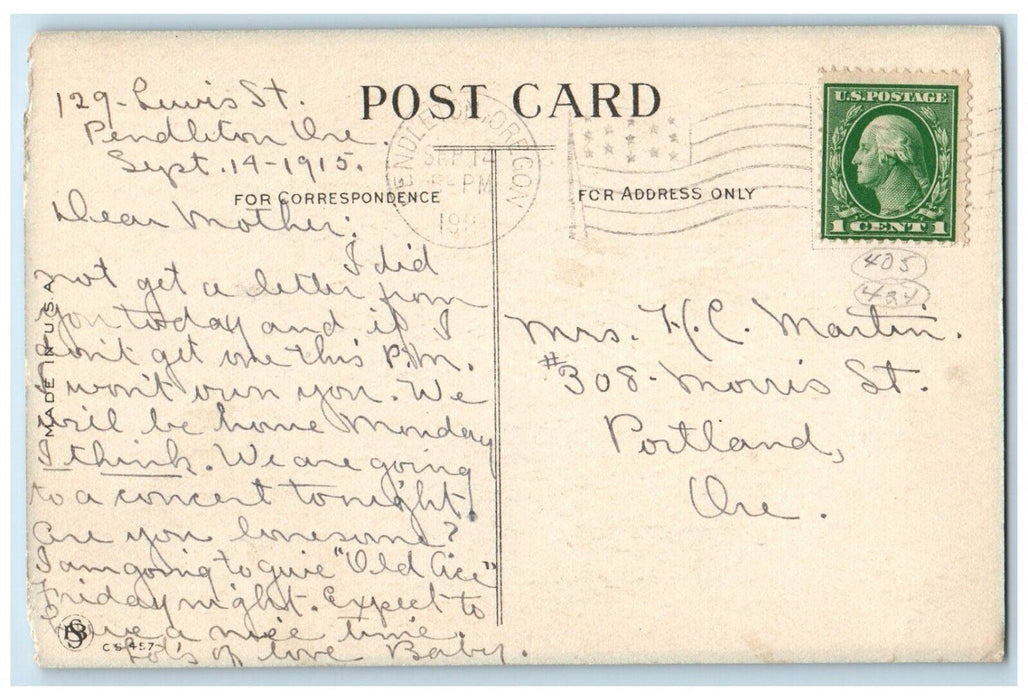 129 - Lewis St.
Pendleton Ore.
Sept. 14 - 1915.
POST CARD
PENDLETON, OREGON
SEP 14
PM
191
U.S. POSTAGE
1 CENT 1
FOR CORRESPONDENCE
FOR ADDRESS ONLY
405
424.
Dear Mother:
I did
not get a letter from
you today and if I
don't get one this P.M.
I won't own you. We
will be home Monday
I think. We are going
to a concert tonight.
Are you lonesome?
I am going to give "Old Ace"
Friday night. Expect to
have a nice time.
Lots of love Baby.
Mrs. H. C. Martin.
#308 - Morris St.
Portland,
Ore.
MADE IN U.S.A.
C S 457